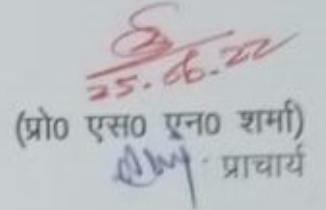 25.06.22
(प्रो0 एस0 एन0 शर्मा)
प्राचार्य